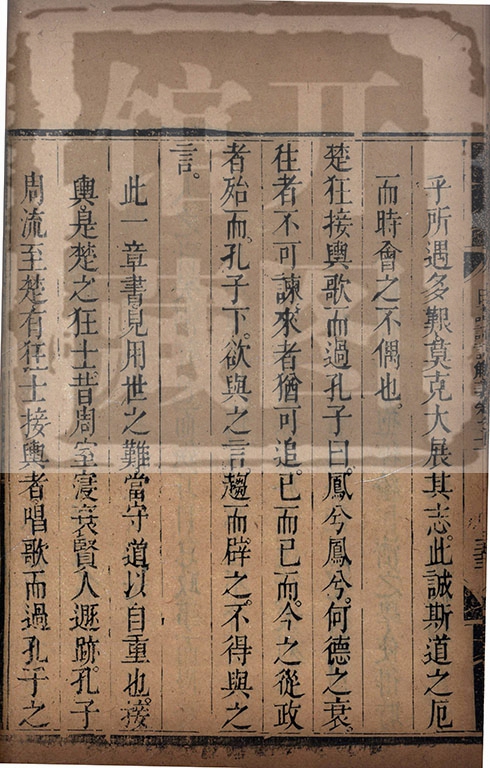 乎所遇多艱莫克大展其志。此誠斯道之厄
而時會之不偶也。
楚狂接輿歌而過孔子曰。鳳兮鳳兮。何德之衰。
往者不可諫。來者猶可追。已而已而。今之從政
者殆而。孔子下。欲與之言。趨而辟之。不得與之
言。
此一章書見用世之難當守道以自重也。接
輿。是楚之狂士。昔周室寖衰賢人遯跡。孔子
周流至楚有狂士接輿者。唱歌而過孔子之